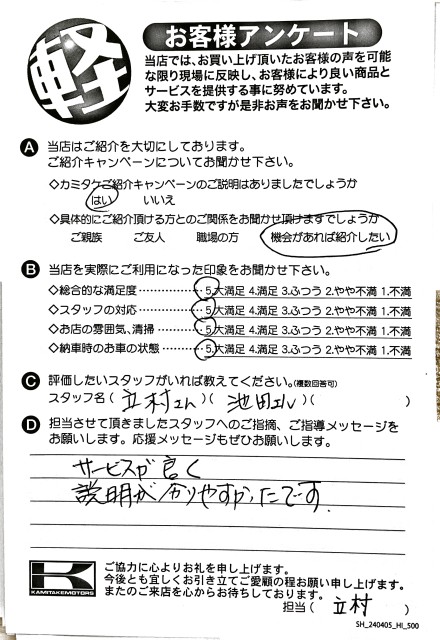 軽
お客様アンケート
当店では、お買い上げ頂いたお客様の声を可能
な限り現場に反映し、お客様により良い商品と
サービスを提供する事に努めています。
大変お手数ですが是非お声をお聞かせ下さい。
A 当店はご紹介を大切にしております。
ご紹介キャンペーンについてお聞かせ下さい。
◇カミタケご紹介キャンペーンのご説明はありましたでしょうか
はい いいえ
◇具体的にご紹介頂ける方とのご関係をお聞かせ頂けますでしょうか
ご親族 ご友人 職場の方 機会があれば紹介したい
B 当店を実際にご利用になった印象をお聞かせ下さい。
◇総合的な満足度………………5.大満足 4.満足 3.ふつう 2.やや不満 1.不満
◇スタッフの対応………………5.大満足 4.満足 3.ふつう 2.やや不満 1.不満
◇お店の雰囲気、清掃…………5.大満足 4.満足 3.ふつう 2.やや不満 1.不満
◇納車時のお車の状態…………5.大満足 4.満足 3.ふつう 2.やや不満 1.不満
C 評価したいスタッフがいれば教えてください。(複数回答可)
スタッフ名( 立村さん )( 池田さん )( )
D 担当させて頂きましたスタッフへのご指摘、ご指導メッセージを
お願いします。応援メッセージもぜひお願いします。
サービスが良く
説明が分りやすかったです。
K
KAMITAKEMOTORS
ご協力に心よりお礼を申し上げます。
今後とも宜しくお引き立てご愛顧の程お願い申し上げます。
またのご来店を心からお待ちしております。
担当( 立村 )
SH_240405_HI_500